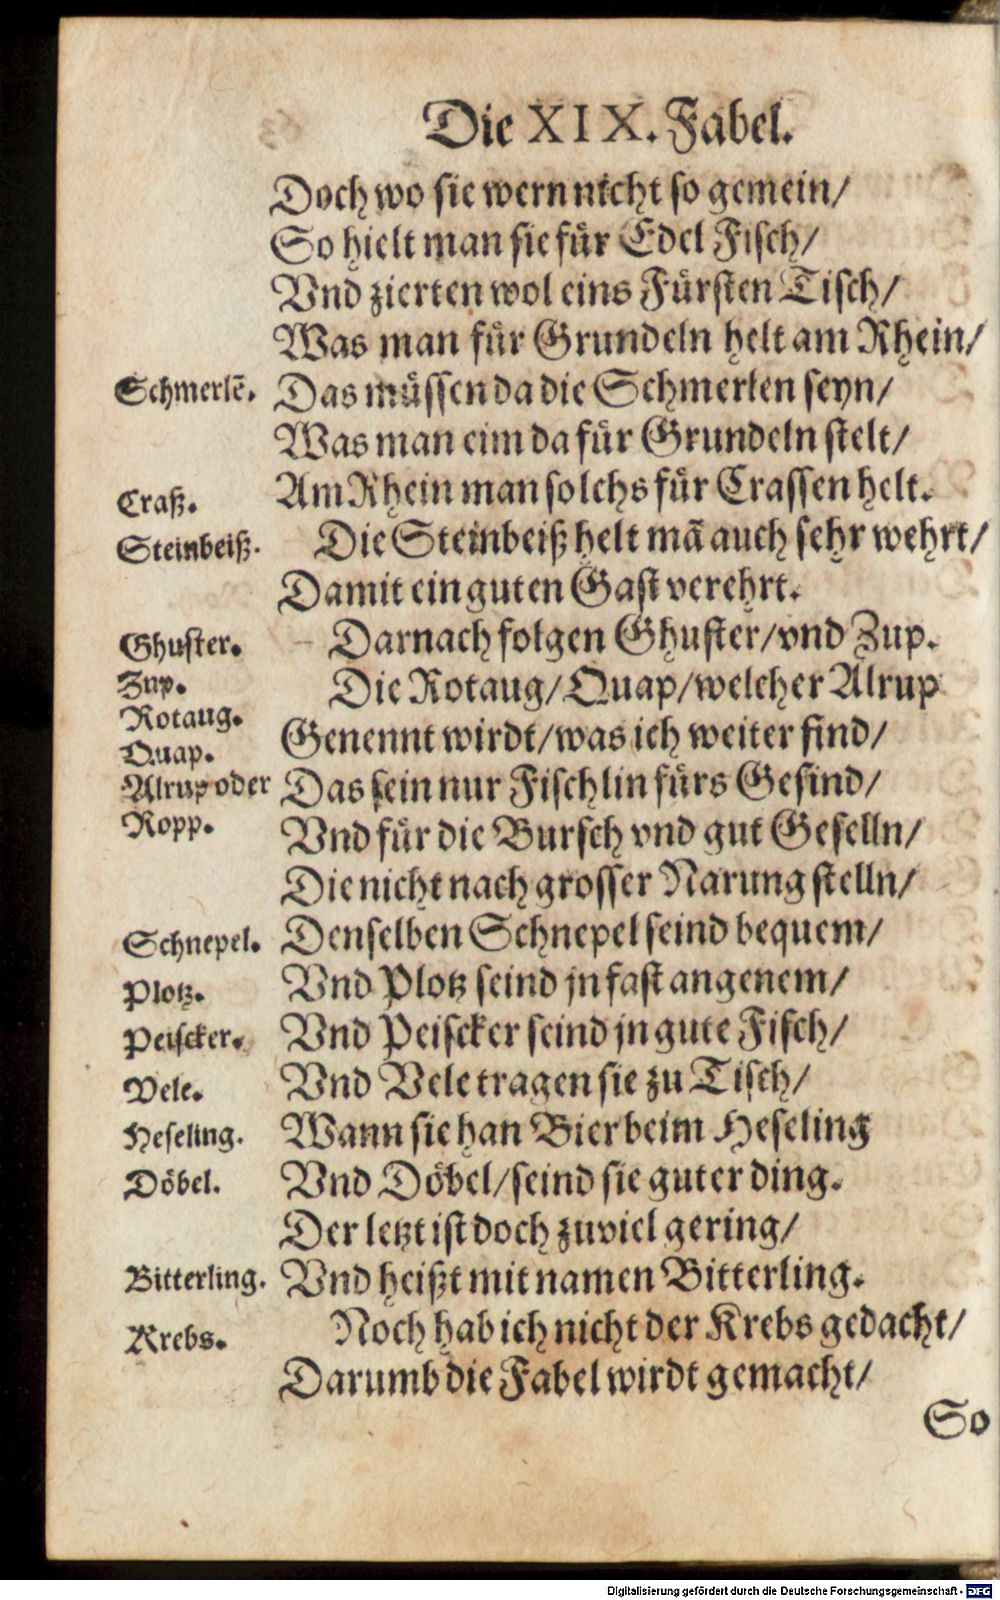 Die XIX. Fabel.
Doch wo sie wern nicht so gemein/
So hielt man sie fuͤr Edel Fisch/
Vnd zierten wol eins Fuͤrsten Tisch/
Was man fuͤr Grundeln helt am Rhein/
Schmerlē. Das muͤssen da die Schmerlen seyn/
Was man eim da fuͤr Grundeln stelt/
Craß. Am Rhein man solchs fuͤr Crassen helt.
Steinbeiß. Die Steinbeiß helt mā auch sehr wehrt/
Damit ein guten Gast verehrt.
Ghuster. Darnach folgen Ghuster/vnd Zup.
Zup. Die Rotaug/Quap/welcher Alrup
Rotaug. Genennt wirdt/was ich weiter find/
Quap.
Alrup oder Das sein nur Fischlin fuͤrs Gesind/
Ropp. Vnd fuͤr die Bursch vnd gut Geselln/
Die nicht nach grosser Narung stelln/
Schnepel. Denselben Schnepel seind bequem/
Plotz. Vnd Plotz seind jn fast angenem/
Peiscker. Vnd Peiscker seind jn gute Fisch/
Vele. Vnd Vele tragen sie zu Tisch/
Heseling. Wann sie han Bier beim Heseling
Doͤbel. Vnd Doͤbel/seind sie guter ding.
Der letzt ist doch zuviel gering/
Bitterling. Vnd heißt mit namen Bitterling.
Krebs. Noch hab ich nicht der Krebs gedacht/
Darumb die Fabel wirdt gemacht/
So
Digitalisierung gefördert durch die Deutsche Forschungsgemeinschaft - DFG